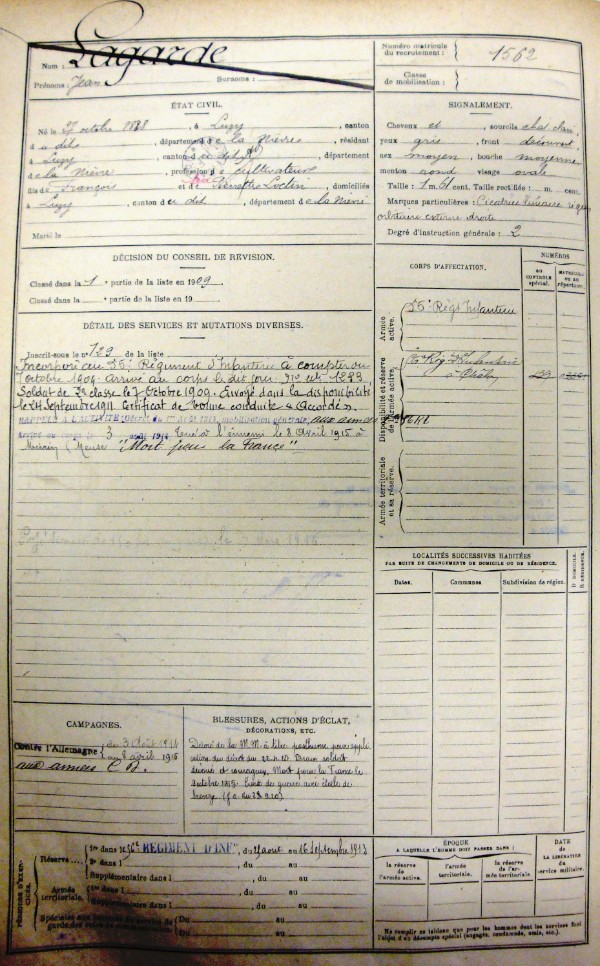 Lagarde
Nom :
Prénoms : Jean Surnoms :
Numéro matricule du recrutement : 1562
Classe de mobilisation :
ÉTAT CIVIL.
Né le 27 octobre 1888, à Luzy, canton
du dit, département de la Nièvre, résidant
à Luzy, canton du dit, département
de la Nièvre, profession de cultivateur
fils de François et de domiciliés
à Luzy, canton du dit, département de la Nièvre
Marié le
SIGNALEMENT.
Cheveux et sourcils chat. clair
yeux gris, front découvert
nez moyen, bouche moyenne
menton rond visage ovale
Taille : 1 m. cent. Taille rectifiée : m. cent.
Marques particulières : Cicatrice linéaire
orbitaire externe droite
Degré d'instruction générale : 2
DÉCISION DU CONSEIL DE RÉVISION.
Classé dans la 1e partie de la liste en 1909.
Classé dans la e partie de la liste en 19
DÉTAIL DES SERVICES ET MUTATIONS DIVERSES.
Inscrit sous le n° 129 de la liste
Incorporé au 85e Régiment d'Infanterie à compter du
7 octobre 1909. Arrivé au corps le dit jour,
Soldat de 2e classe le 7 Octobre 1909. Envoyé dans la disponibilité
le 24 Septembre 1911. Certificat de bonne conduite "Accordé".
RAPPELÉ A L'ACTIVITÉ (Décret du 1er août 1914, mobilisation générale) aux armées
Arrivé au corps le 3 août 1914. Tué à l'ennemi le 8 Avril 1915 à
(Meuse) "Mort pour la France"
CORPS D'AFFECTATION.
NUMÉROS
AU CONTROLE spécial.
MATRICULE ou au répertoire.
Armée active.
85e Régt Infanterie
Disponibilité et réserve de l'armée active.
Armée territoriale et sa réserve.
LOCALITÉS SUCCESSIVES HABITÉES
PAR SUITE DE CHANGEMENTS DE DOMICILE OU DE RÉSIDENCE.
Dates. Communes Subdivision de région.
D. DOMICILE. R. RÉSIDENCE.
CAMPAGNES.
Contre l'Allemagne du 3 Août 1914
au 8 avril 1915
aux armées
BLESSURES, ACTIONS D'ÉCLAT,
DÉCORATIONS, ETC.
Décoré de la M.M. à titre posthume pour appli
cation du décret du Brave soldat
dévoué et courageux, Mort pour la France le
1915. Croix de guerre avec étoile de
bronze
PÉRIODES D'EXERCICES.
Réserve
1re dans le REGIMENT D'INFie, du août au 16 Septembre 1913
2e dans l , du au
Supplémentaire dans l , du au
Armée territoriale.
1re dans l , du au
Supplémentaire dans l , du au
Du au
Du au
ÉPOQUE
A LAQUELLE L'HOMME DOIT PASSER DANS :
la réserve de l'armée active.
l'armée territoriale.
la réserve de l'armée territoriale.
DATE
DE LA LIBÉRATION
du service militaire.
Ne remplir ce tableau que pour les hommes dont les services font
l'objet d'un décompte spécial (engagés, condamnés, omis, etc.).